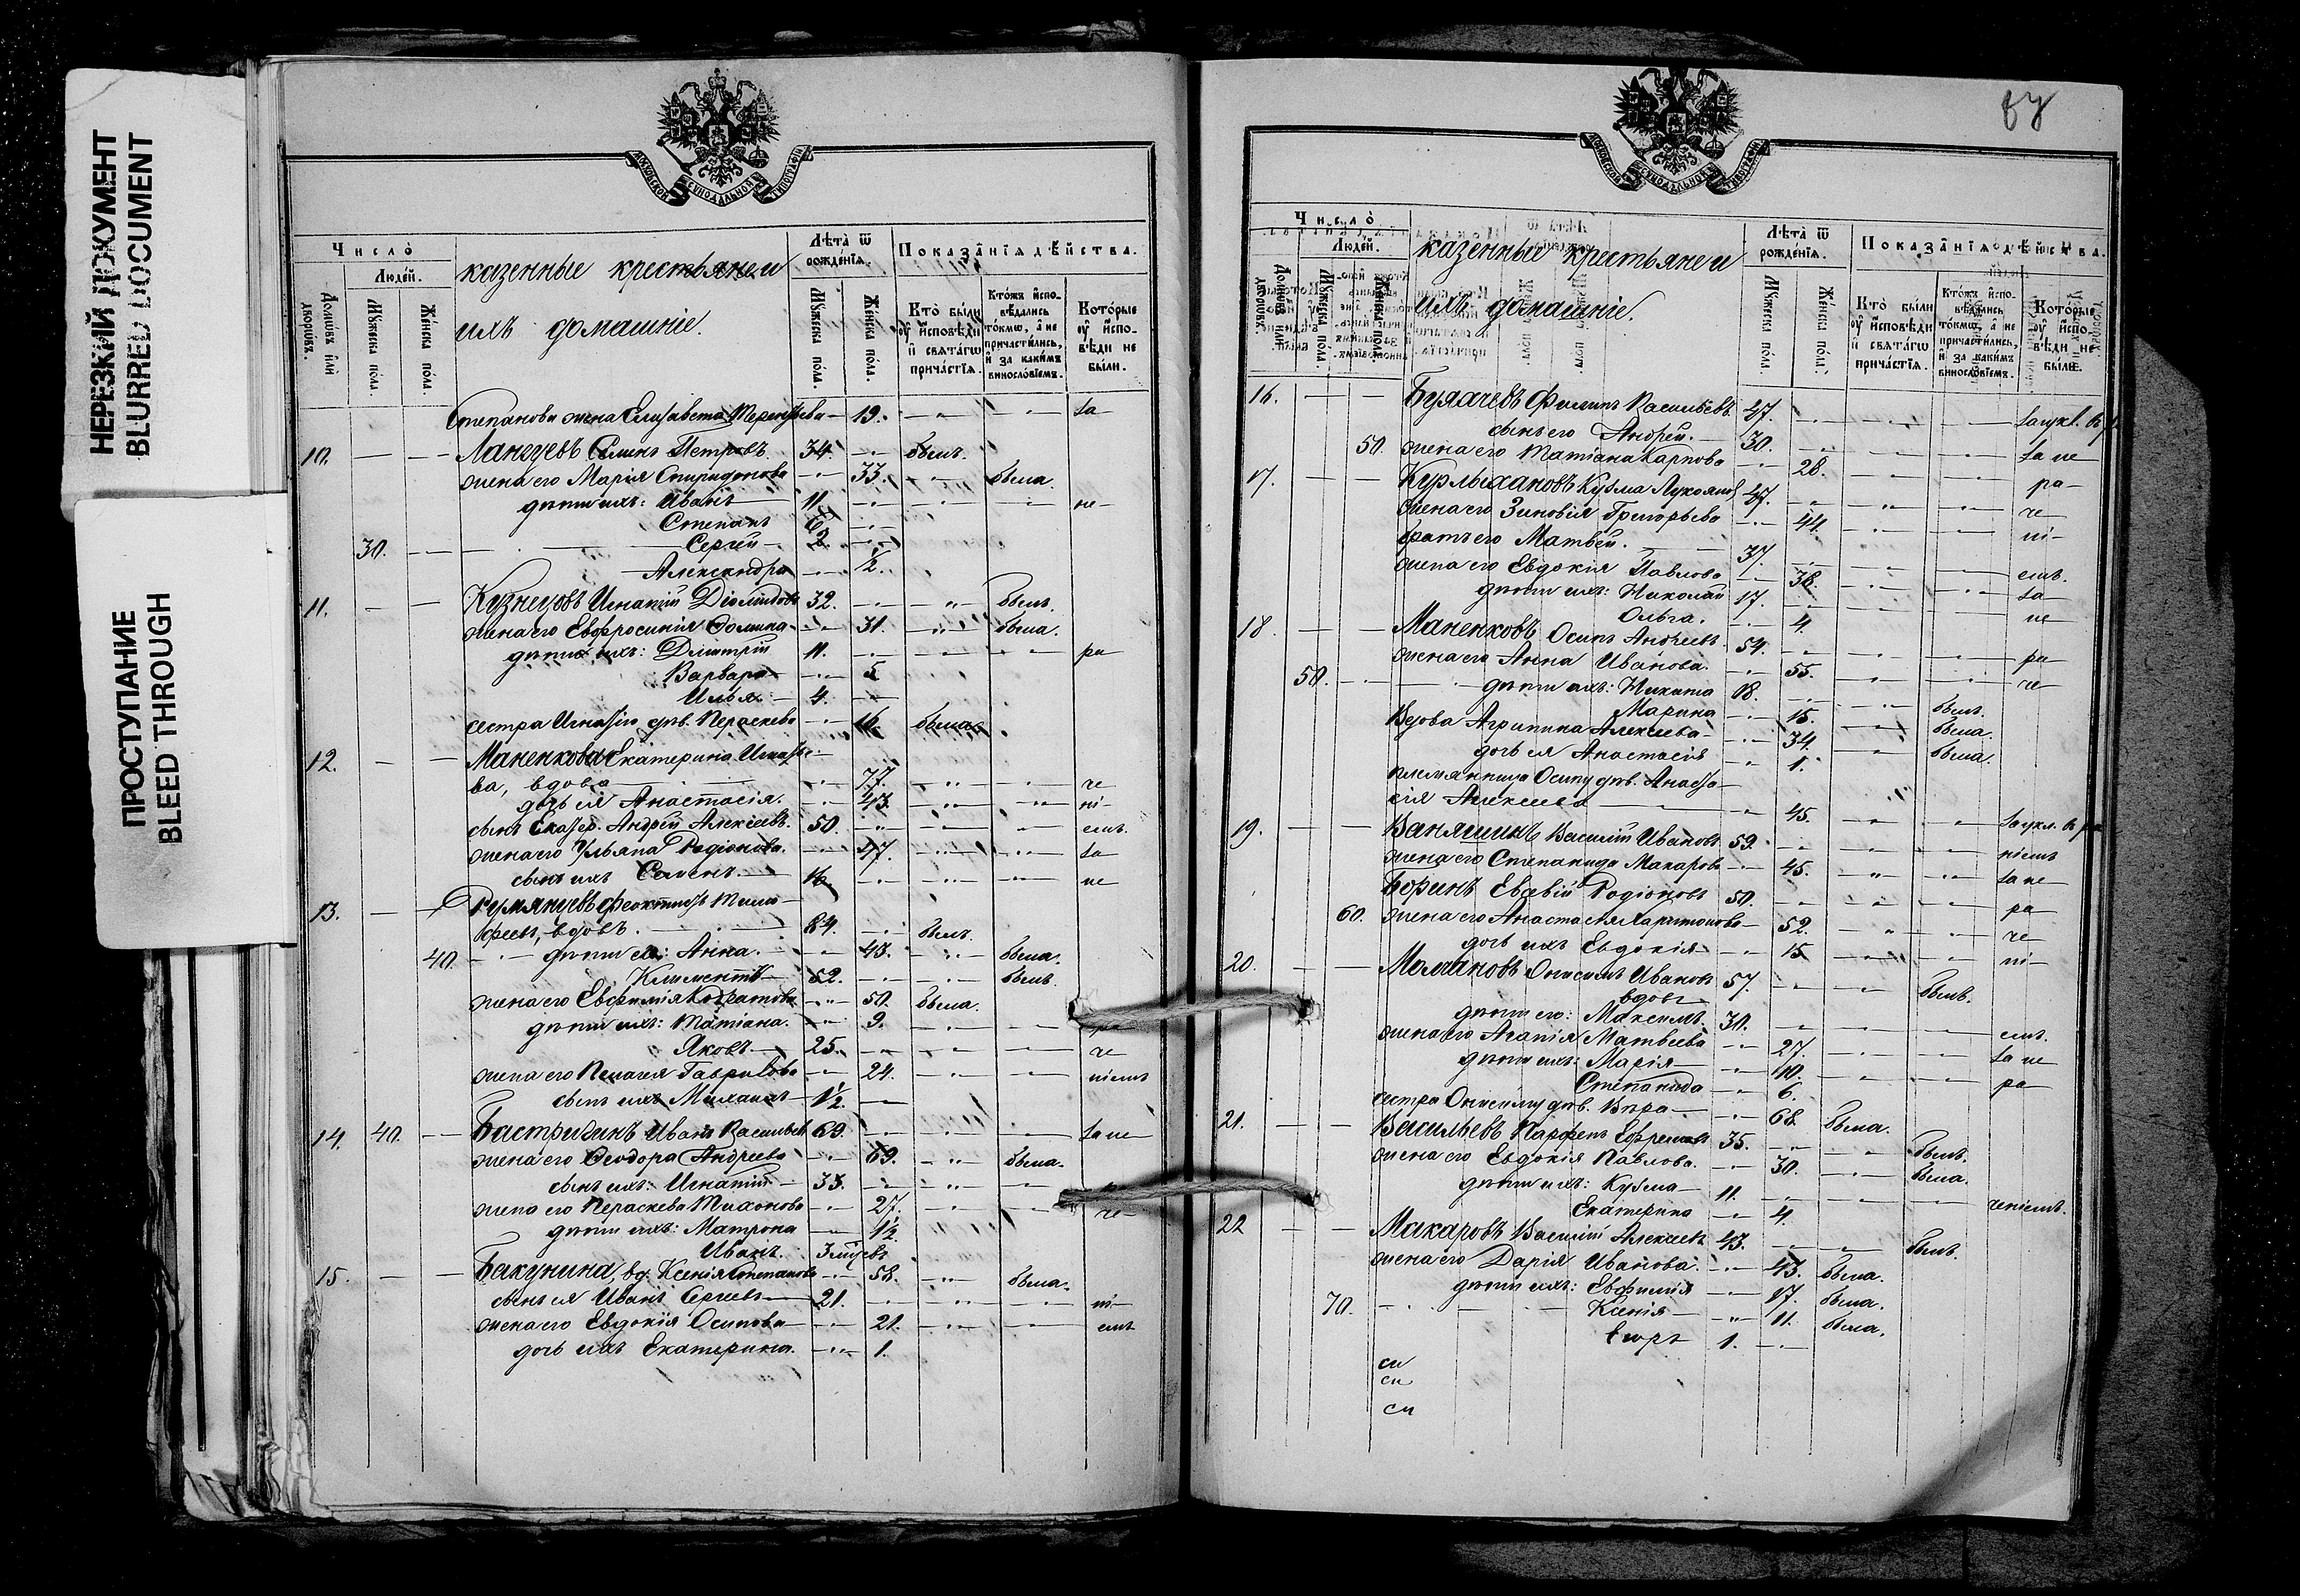 НЕРЕЗКИЙ ДОКУМЕНТ
BLURRED DOCUMENT
ПРОСТУПАНИЕ
BLEED THROUGH
МОСКОВСКОЙ СУНОДАЛЬНОЙ ТИПОГРАФІИ
Число̀
Людей.
Домѡвъ илѝ дворѡвъ.
Мꙋжеска пола.
Женска пола.
казенные крестьяне и
ихъ домашніе.
Лѣта̀ ѿ рожденїѧ.
Мꙋжеска пола.
Женска пола.
Показанїѧ дѣйства.
Кто̀ были ᲂу҆ исповѣди и свѧтагѡ причастїѧ.
Ктожъ исповѣдались токмѡ, а не причастились, и за какимъ винословїемъ.
Которые ᲂу҆ исповѣди не были.
Степанова жена Елизавета Терентьева — 19. за
10. Лангуевъ Симъ Петровъ. 34. былъ.
жена его Марія Спиридонова 33. была.
дѣти ихъ: Иванъ 11. не
Степанъ 6
30. Сергѣй 2.
Александра 1/2.
11. Кузнецовъ Игнатій Діомидовъ 32. былъ.
жена его Евфросинія Фомина 31. была.
дѣти ихъ: Дмитрій 11. ра
Варвара 5
Илья 4.
сестра Игнатію дѣв. Параскева 16. была
12. Маненкова Екатерина Игнатье-
ва, вдова 77. че
дочь ея Анастасія. 43. ні
сынъ Екатер. Андрей Алексѣевъ. 50. емъ.
жена его Ульяна Родіонова. 47. за
сынъ ихъ Семенъ. 16. не
13. Румянцевъ Феоктистъ Тимо-
феевъ, вдовъ. 84. былъ.
40. дѣти его: Анна. 43. была.
Климентъ 52. былъ.
жена его Евфимія Кодратова 50. была.
дѣти ихъ: Татіана. 9. ра
Яковъ 25. че
жена его Пелагея Гаврилова 24. ніемъ
сынъ ихъ Михаилъ 1 1/2.
14. 40. Бастрыгинъ Иванъ Васильевъ 69. за не
жена его Феодора Андреева 69. была.
сынъ ихъ: Игнатій 33.
жена его Параскева Тихонова 27. че
дѣти ихъ: Матрона 1 1/2
Иванъ. 3 мѣсяцъ
15. Бакунина, вд. Ксенія Степанова 58. была.
сынъ ея Иванъ Сергеевъ 21. ні
жена его Евдокія Осипова 21. емъ
дочь ихъ Екатерина. 1.
МОСКОВСКОЙ СУНОДАЛЬНОЙ ТИПОГРАФІИ
Число̀
Людей.
Домѡвъ илѝ дворѡвъ.
Мꙋжеска пола.
Женска пола.
казенные крестьяне и
ихъ домашніе.
Лѣта̀ ѿ рожденїѧ.
Мꙋжеска пола.
Женска пола.
Показанїѧ дѣйства.
Кто̀ были ᲂу҆ исповѣди и свѧтагѡ причастїѧ.
Ктожъ исповѣдались токмѡ, а не причастились, и за какимъ винословїемъ.
Которые ᲂу҆ исповѣди не были.
16. Булачевъ Филипъ Васильевъ 47.
сынъ его Андрей. 30. за не
50. жена его Татіана Карпова 28. ра
17. Курлыхановъ Кузма Лукоянов 47. че
жена его Зиновія Григорьева 44. ні
братъ его Матвѣй. 37. емъ.
жена его Евдокія Павлова 38. за
дѣти ихъ: Николай 17. не
Ольга. 4.
18. Маненковъ Осипъ Андреевъ 54. ра
жена его Анна Иванова. 55. че
50. дѣти ихъ: Никита 18. былъ.
Марина 15. была.
Вдова Агрипина Алексеева 34. была.
дочь ея Анастасія 1.
племянница Осипу дѣв. Анаста-
сія Алексеева 45. за укл. въ ра
19. Ваняшинъ Василій Ивановъ 59. ніемъ
жена его Степанида Макарова 45. за не
Боринъ Евсевій Родіоновъ 50. ра
60. жена его Анастасія Харитонова 52. че
дочь ихъ Евдокія 15 ні
20. Молчановъ Онисимъ Ивановъ 57. былъ.
вдовъ
дѣти его: Максимъ. 30. емъ.
жена его Агапія Матвѣева 27. за не
дѣти ихъ: Марія 10. ра
Степанида 6.
сестра Онисиму дѣв. Вѣра 68. была.
21. Васильевъ Парфенъ Ефремовъ 35. былъ.
жена его Евдокія Павлова. 30. была.
дѣти ихъ: Кузма 11. ченіемъ.
Екатерина 4.
22 Макаровъ Василій Алексѣевъ 43. былъ.
жена его Дарія Иванова. 43. была.
дѣти ихъ: Евфимія 17. была.
70. Ксенія 11. была.
Егоръ 1.
си
си
си